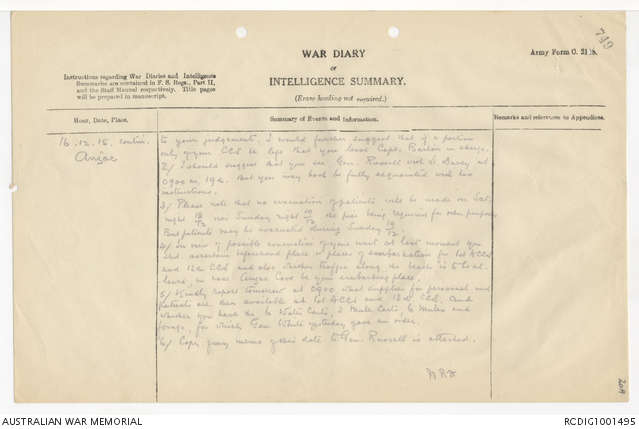 749
WAR DIARY
or
INTELLIGENCE SUMMARY.
(Erase heading not required.)
Army Form C. 2118.
Instructions regarding War Diaries and Intelligence
Summaries are contained in F. S. Regs., Part II,
and the Staff Manual respectively. Title pages
will be prepared in manuscript.
Hour, Date, Place.
Summary of Events and Information.
Remarks and references to Appendices.
16.12.15. contin.
Anzac
to your judgement, I would further suggest that if a portion
only of your CCS be left that you leave Capt. in charge.
2/ I should suggest that you see Gen. Russell at
0900 on 19th. that you may both be fully acquainted with his
instructions.
3/ Please note that no evacuation of patients will be made on Sat.
night 18/12 nor Sunday night 19/12 the pier being required for other purposes
But patients may be evacuated during Sunday 19/12.
4/ In view of possible evacuation of your unit at last moment you
shd. ascertain place or places of embarkation for 1st ACCS
and 13th CCS and also whether traffic along the beach is to be
in case Anzac Cove be your embarking place.
5/ Kindly report tomorrow at 0900 what supplies for personnel and
patients are then available at 1st ACCS and 13th CCS. And
whether you have the 6 Water Carts, 2 Mule Carts, 6 Mules and
forage, for which Gen White yesterday gave an order.
6/ Copy of my memo of this date to Gen. Russell is attached.
208
AUSTRALIAN WAR MEMORIAL
RCDIG1001495